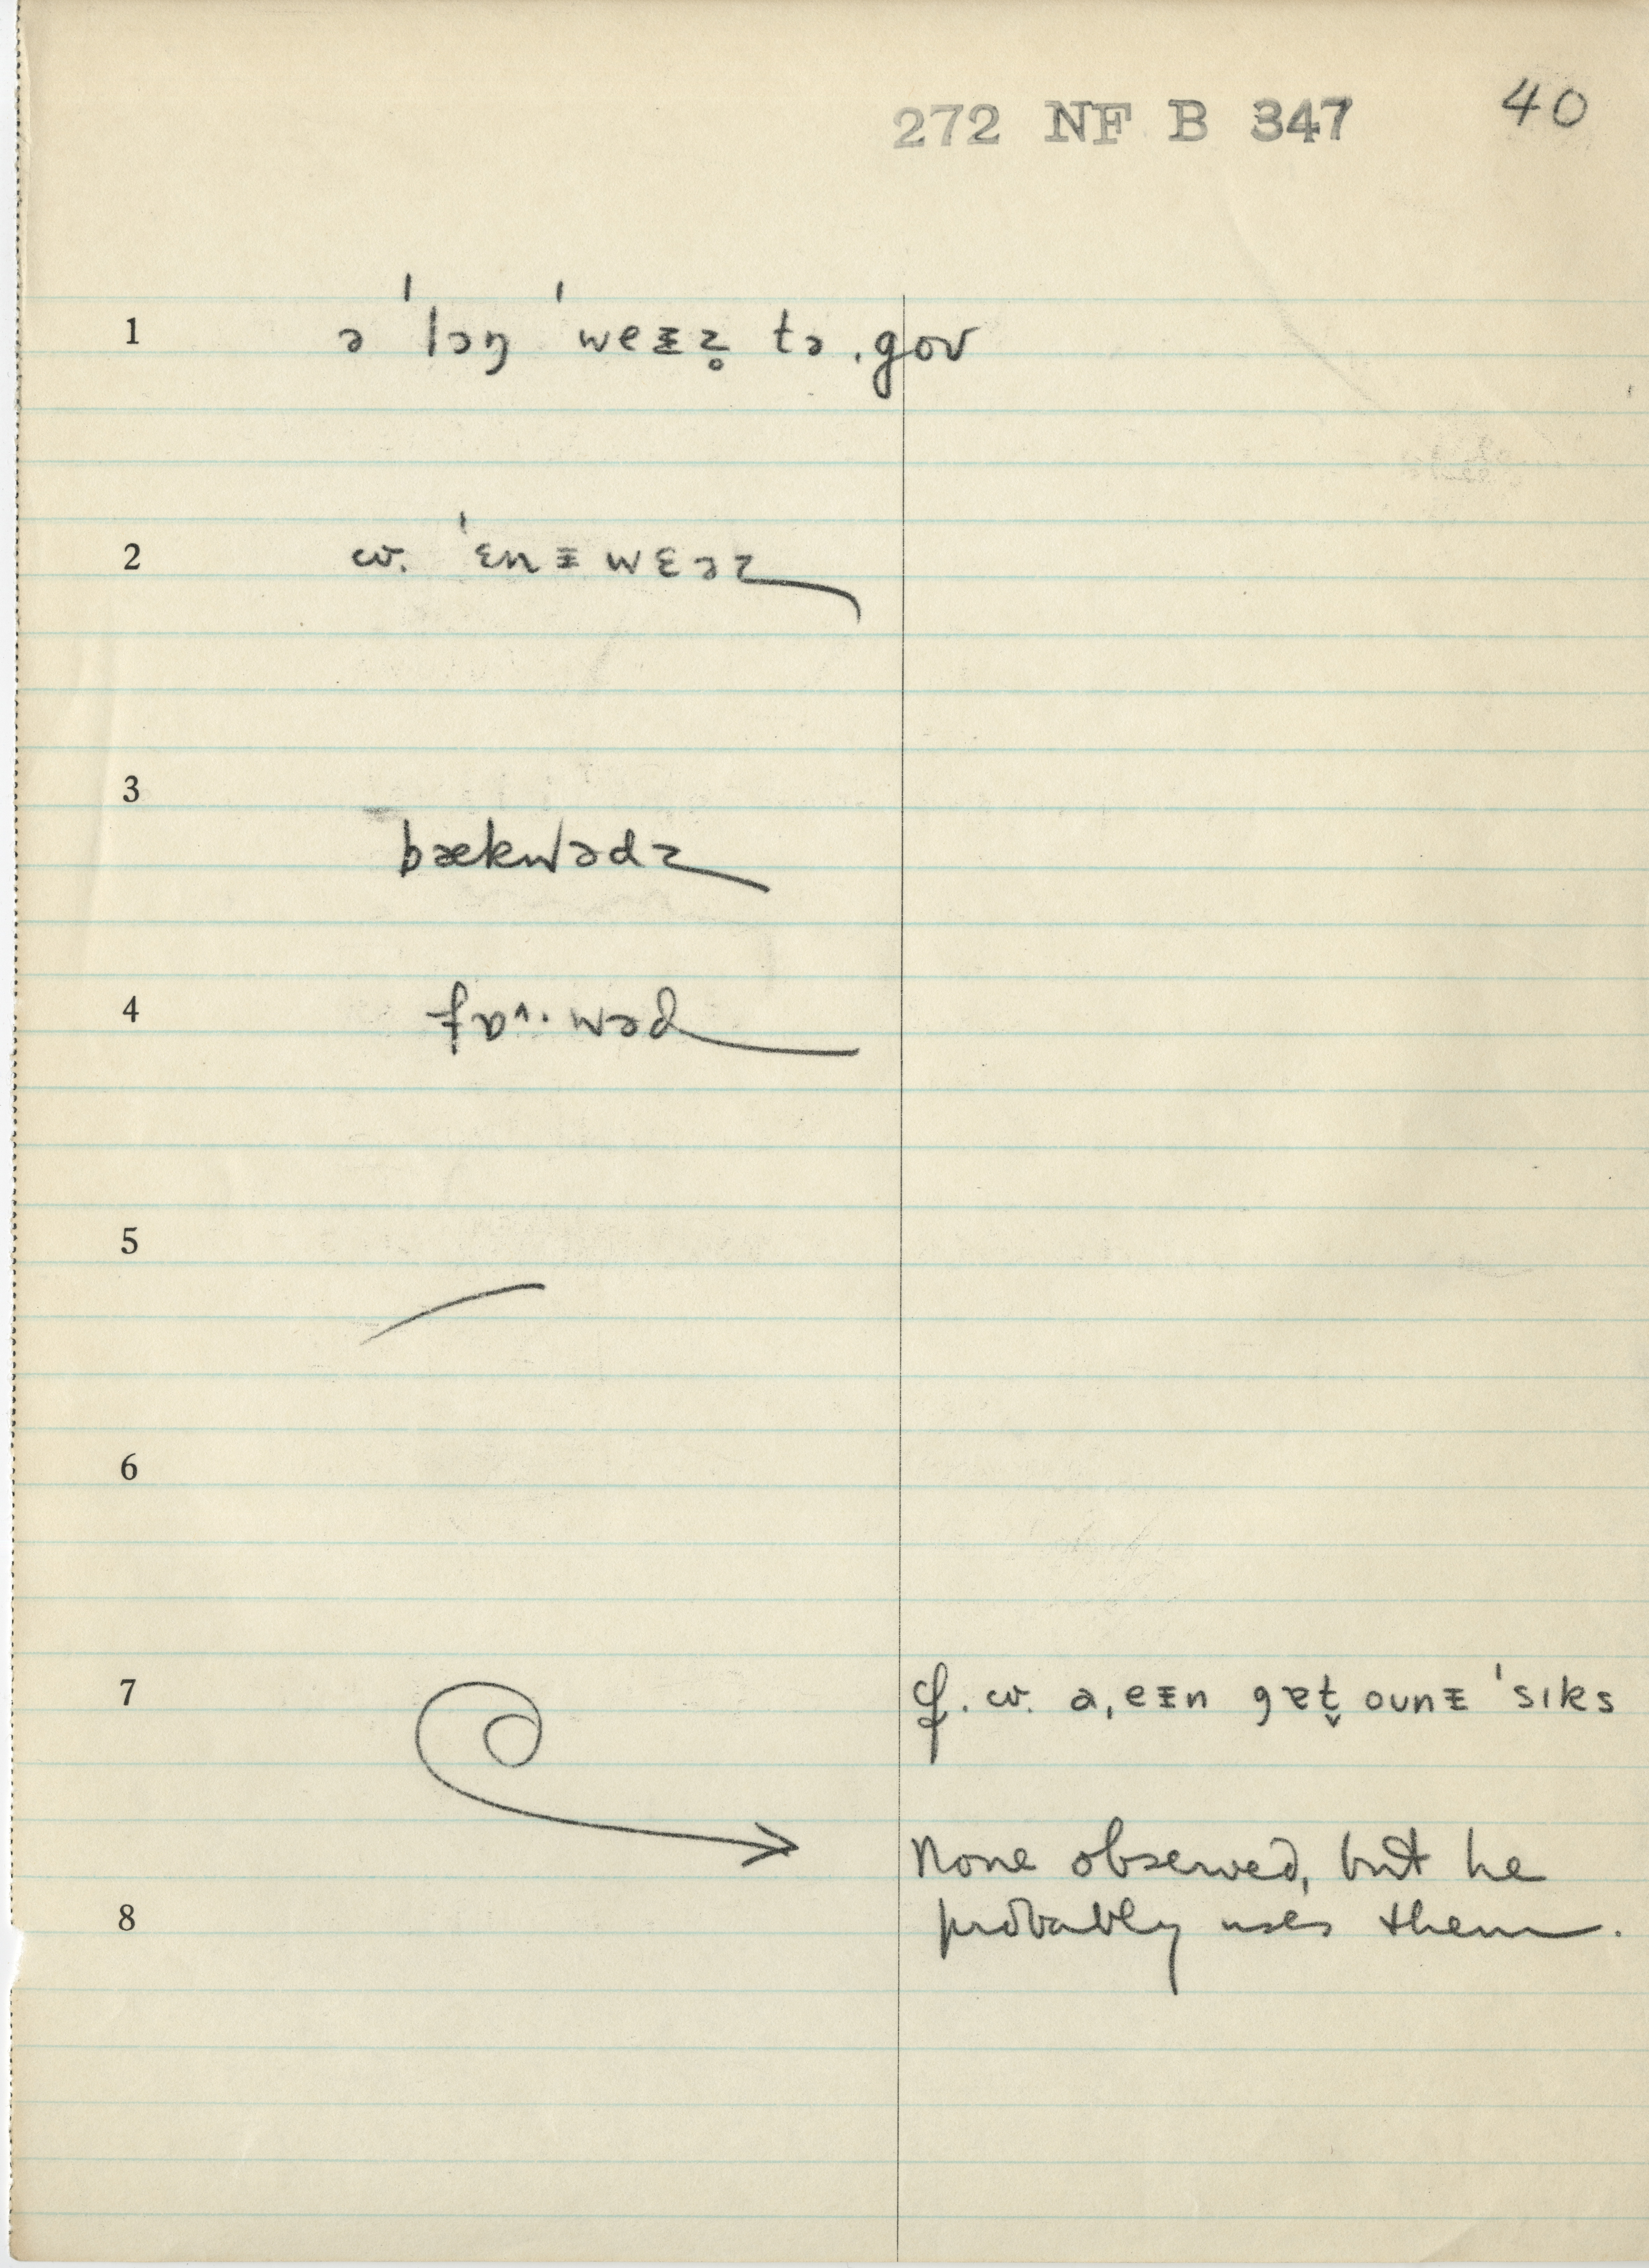 272 NF B 347 40
1 ə ˈlɔŋ ˈweᵻz̥ tə ˌgoʊ
2 cv. ˈɛnᵻwɛəz
3 bækwədz
4 fɒ^·wəd
5
6
7 cf. cv. a ˌeᵻn gɐt̬ oʊnᵻ ˈsɪks
None observed, but he
8 probably uses them.